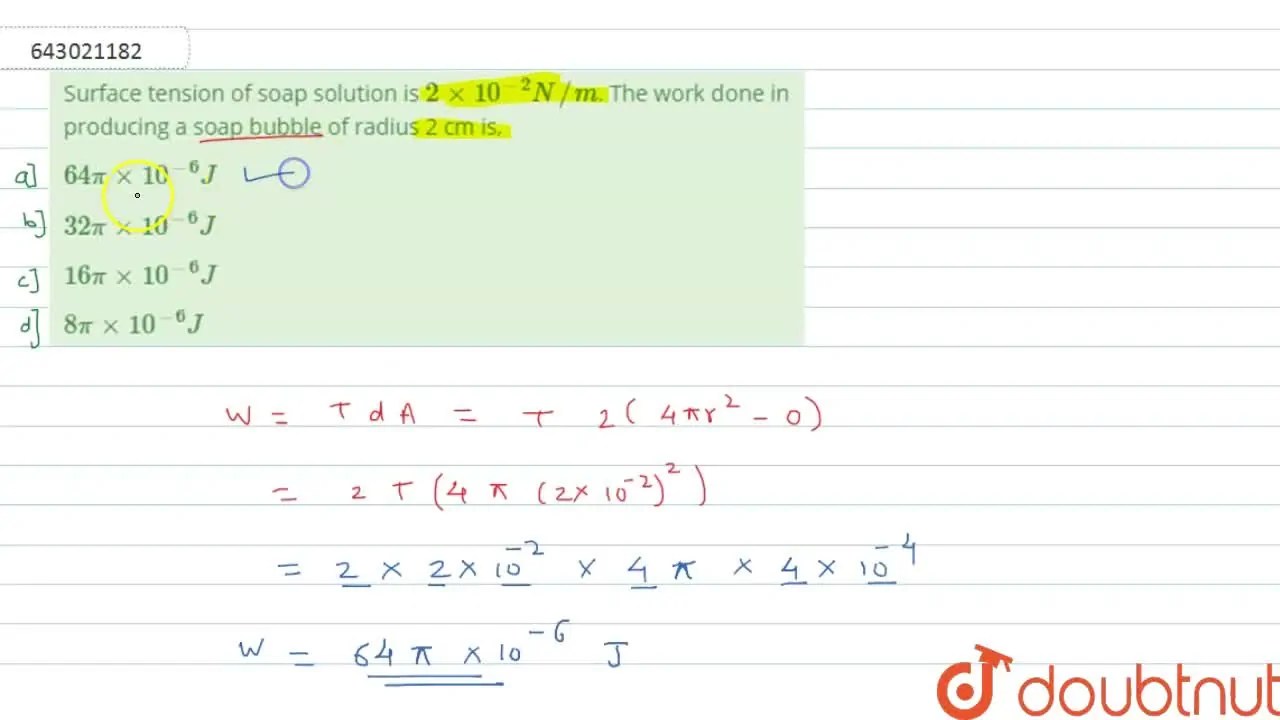 643021182
Surface tension of soap solution is 2 × 10⁻² N/m. The work done in
producing a soap bubble of radius 2 cm is,
a] 64π × 10⁻⁶ J
b] 32π × 10⁻⁶ J
c] 16π × 10⁻⁶ J
d] 8π × 10⁻⁶ J
W = T d A = T 2( 4πr² - 0)
= 2 T (4 π (2× 10⁻²)²)
= 2 × 2 × 10⁻² × 4 π × 4 × 10⁻⁴
W = 64 π × 10⁻⁶ J
doubtnut